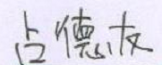 占德友